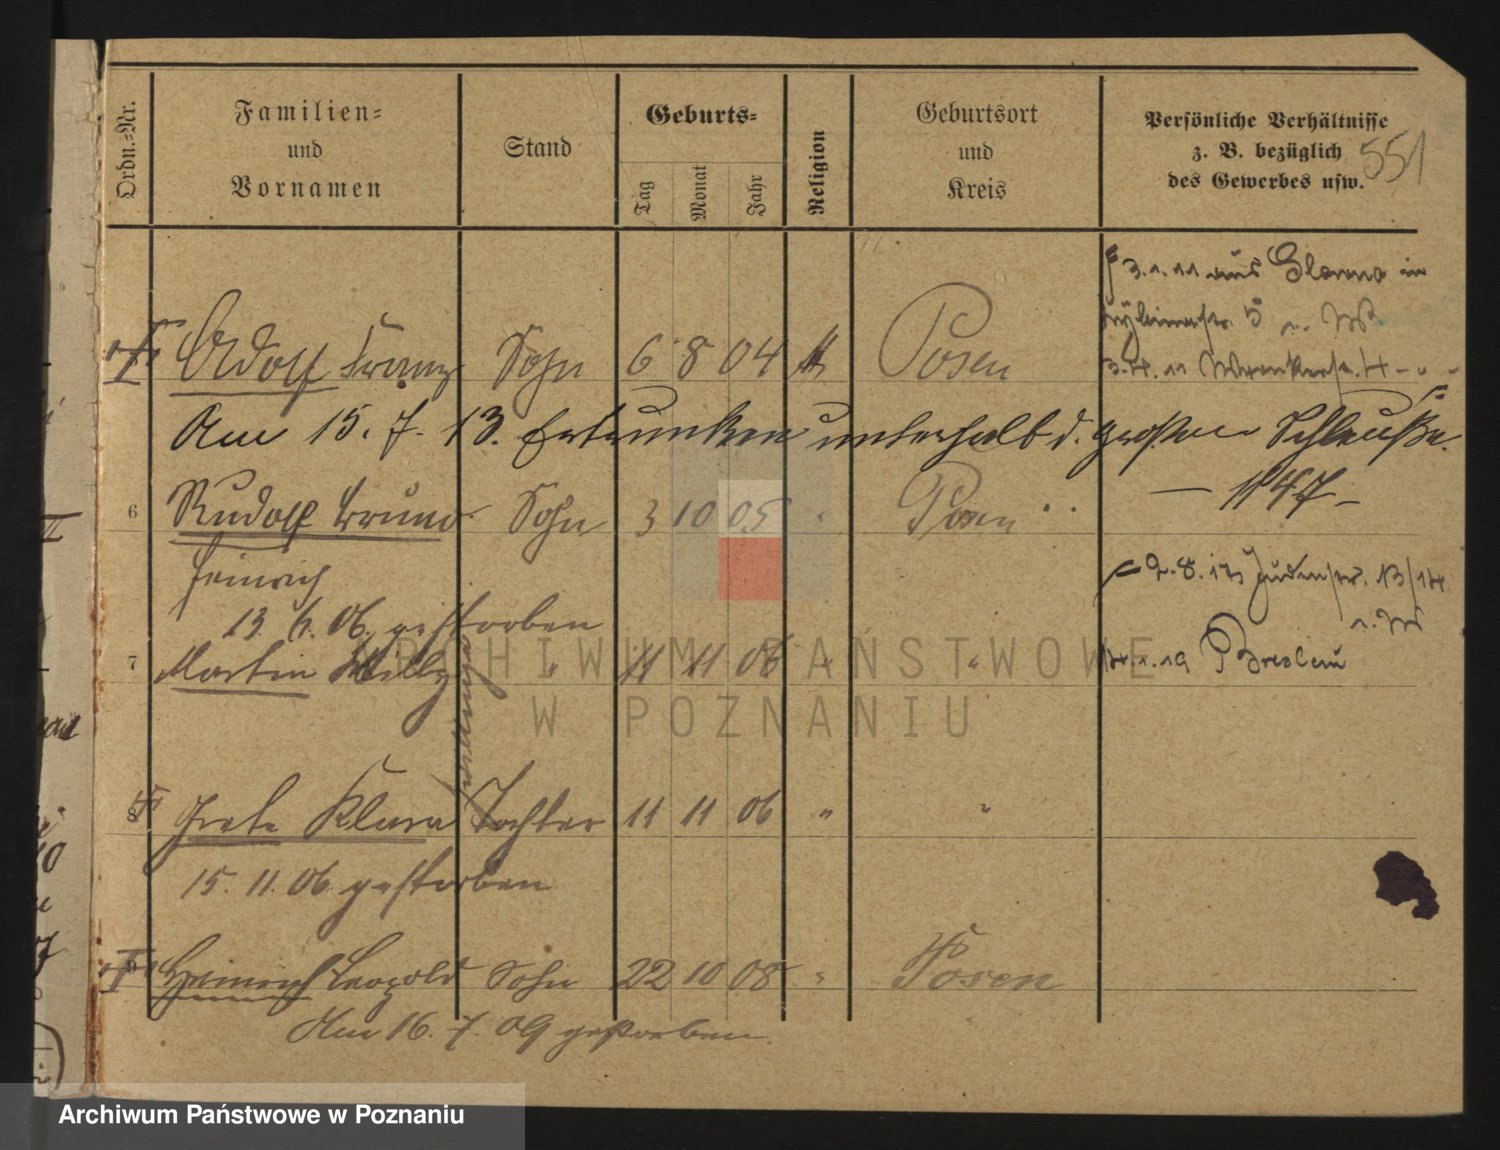 Ordn.=Nr.
Familien=
und
Vornamen
Stand
Geburts=
Tag
Monat
Jahr
Religion
Geburtsort
und
Kreis
Persönliche Verhältnisse
z. B. bezüglich
des Gewerbes usw.
551
3.1.11 aus Glowno in
5
3.4.11 4
Adolf Franz Sohn 6 8 04 Posen
Am 15. 7. 13. Ertrunken unterhalb d. großen Schleuße.
— 1147 —
6 Rudolf Bruno Sohn 3 10 05 " Posen
Heinrich
2.8.13 Judenstr. 13/14
13. 6. 06. gestorben
7 Martin Willy " 11 11 06 " "
4.1.19 Breslau
8 Grete Klara Tochter 11 11 06 " "
15. 11. 06. gestorben
9 Heinrich Leopold Sohn 22 10 08 " Posen
Am 16. 7. 09 gestorben.
ARCHIWUM PAŃSTWOWE
W POZNANIU
Archiwum Państwowe w Poznaniu